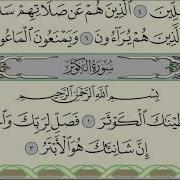 ـلِّينَ ٤ الَّذِينَ هُمْ عَن صَلَاتِهِمْ سَا
الَّذِينَ هُمْ يُرَاءُونَ ٦ وَيَمْنَعُونَ الْمَاعُو
سُورَةُ الْكَوْثَرِ
بِسْمِ اللَّهِ الرَّحْمَٰنِ الرَّحِيمِ
ـطَيْنَاكَ الْكَوْثَرَ ١ فَصَلِّ لِرَبِّكَ وَا
إِنَّ شَانِئَكَ هُوَ الْأَبْتَرُ ٣